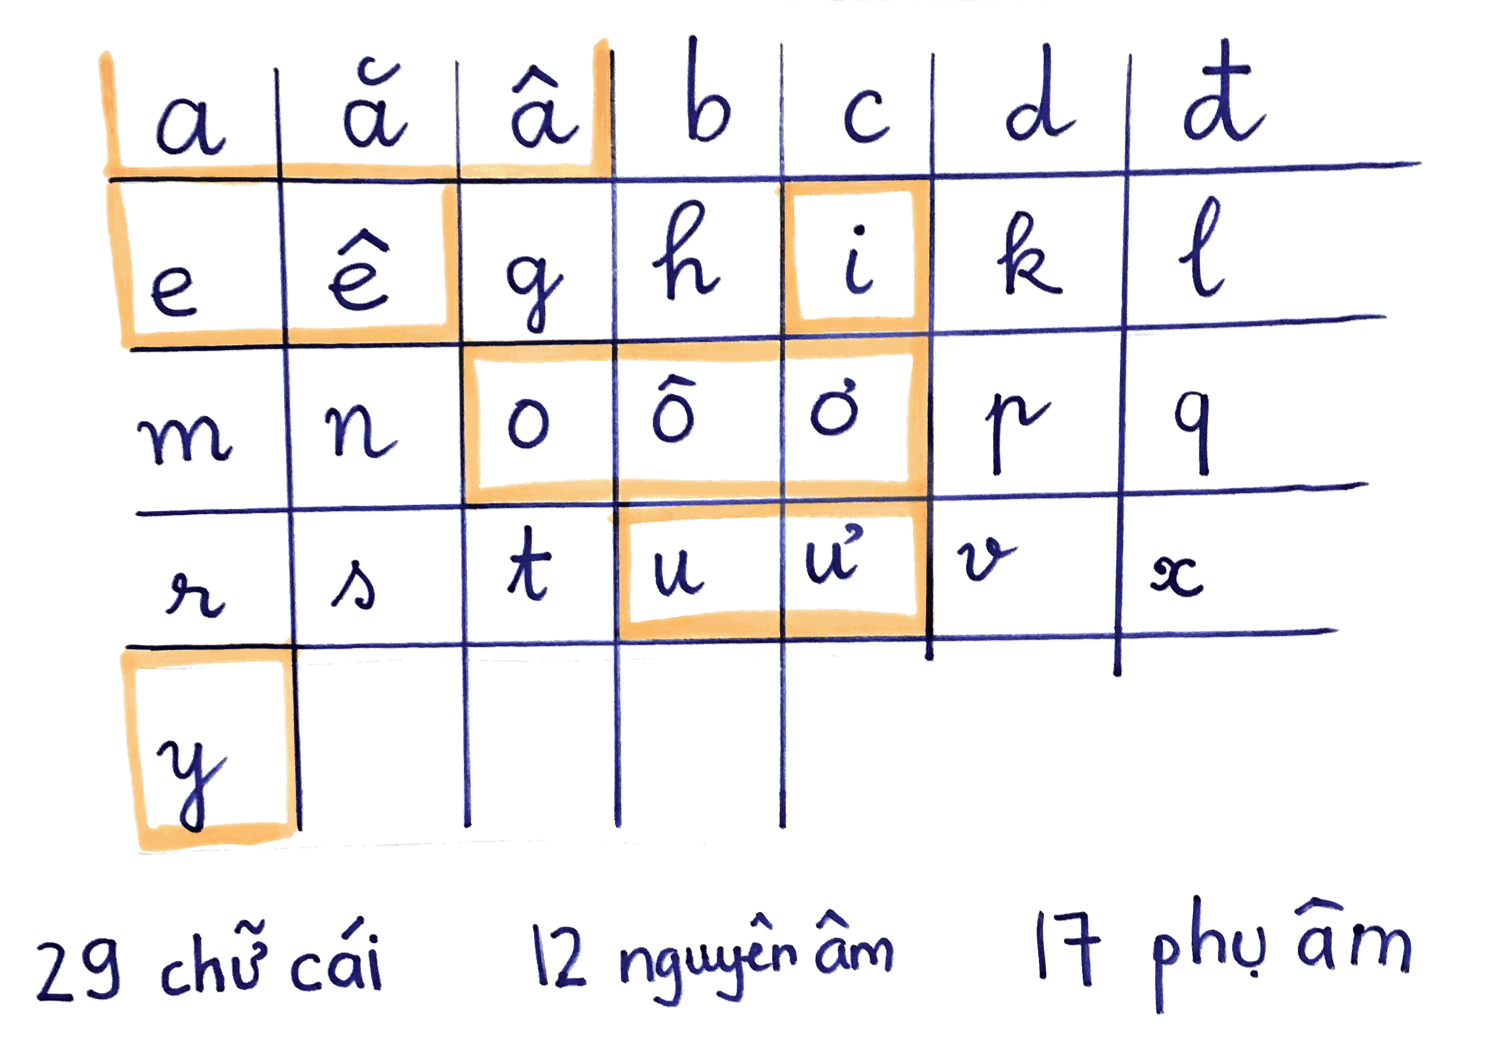 a ă â b c d đ
e ê g h i k l
m n o ô ơ p q
r s t u ư v x
y
29 chữ cái 12 nguyên âm 17 phụ âm